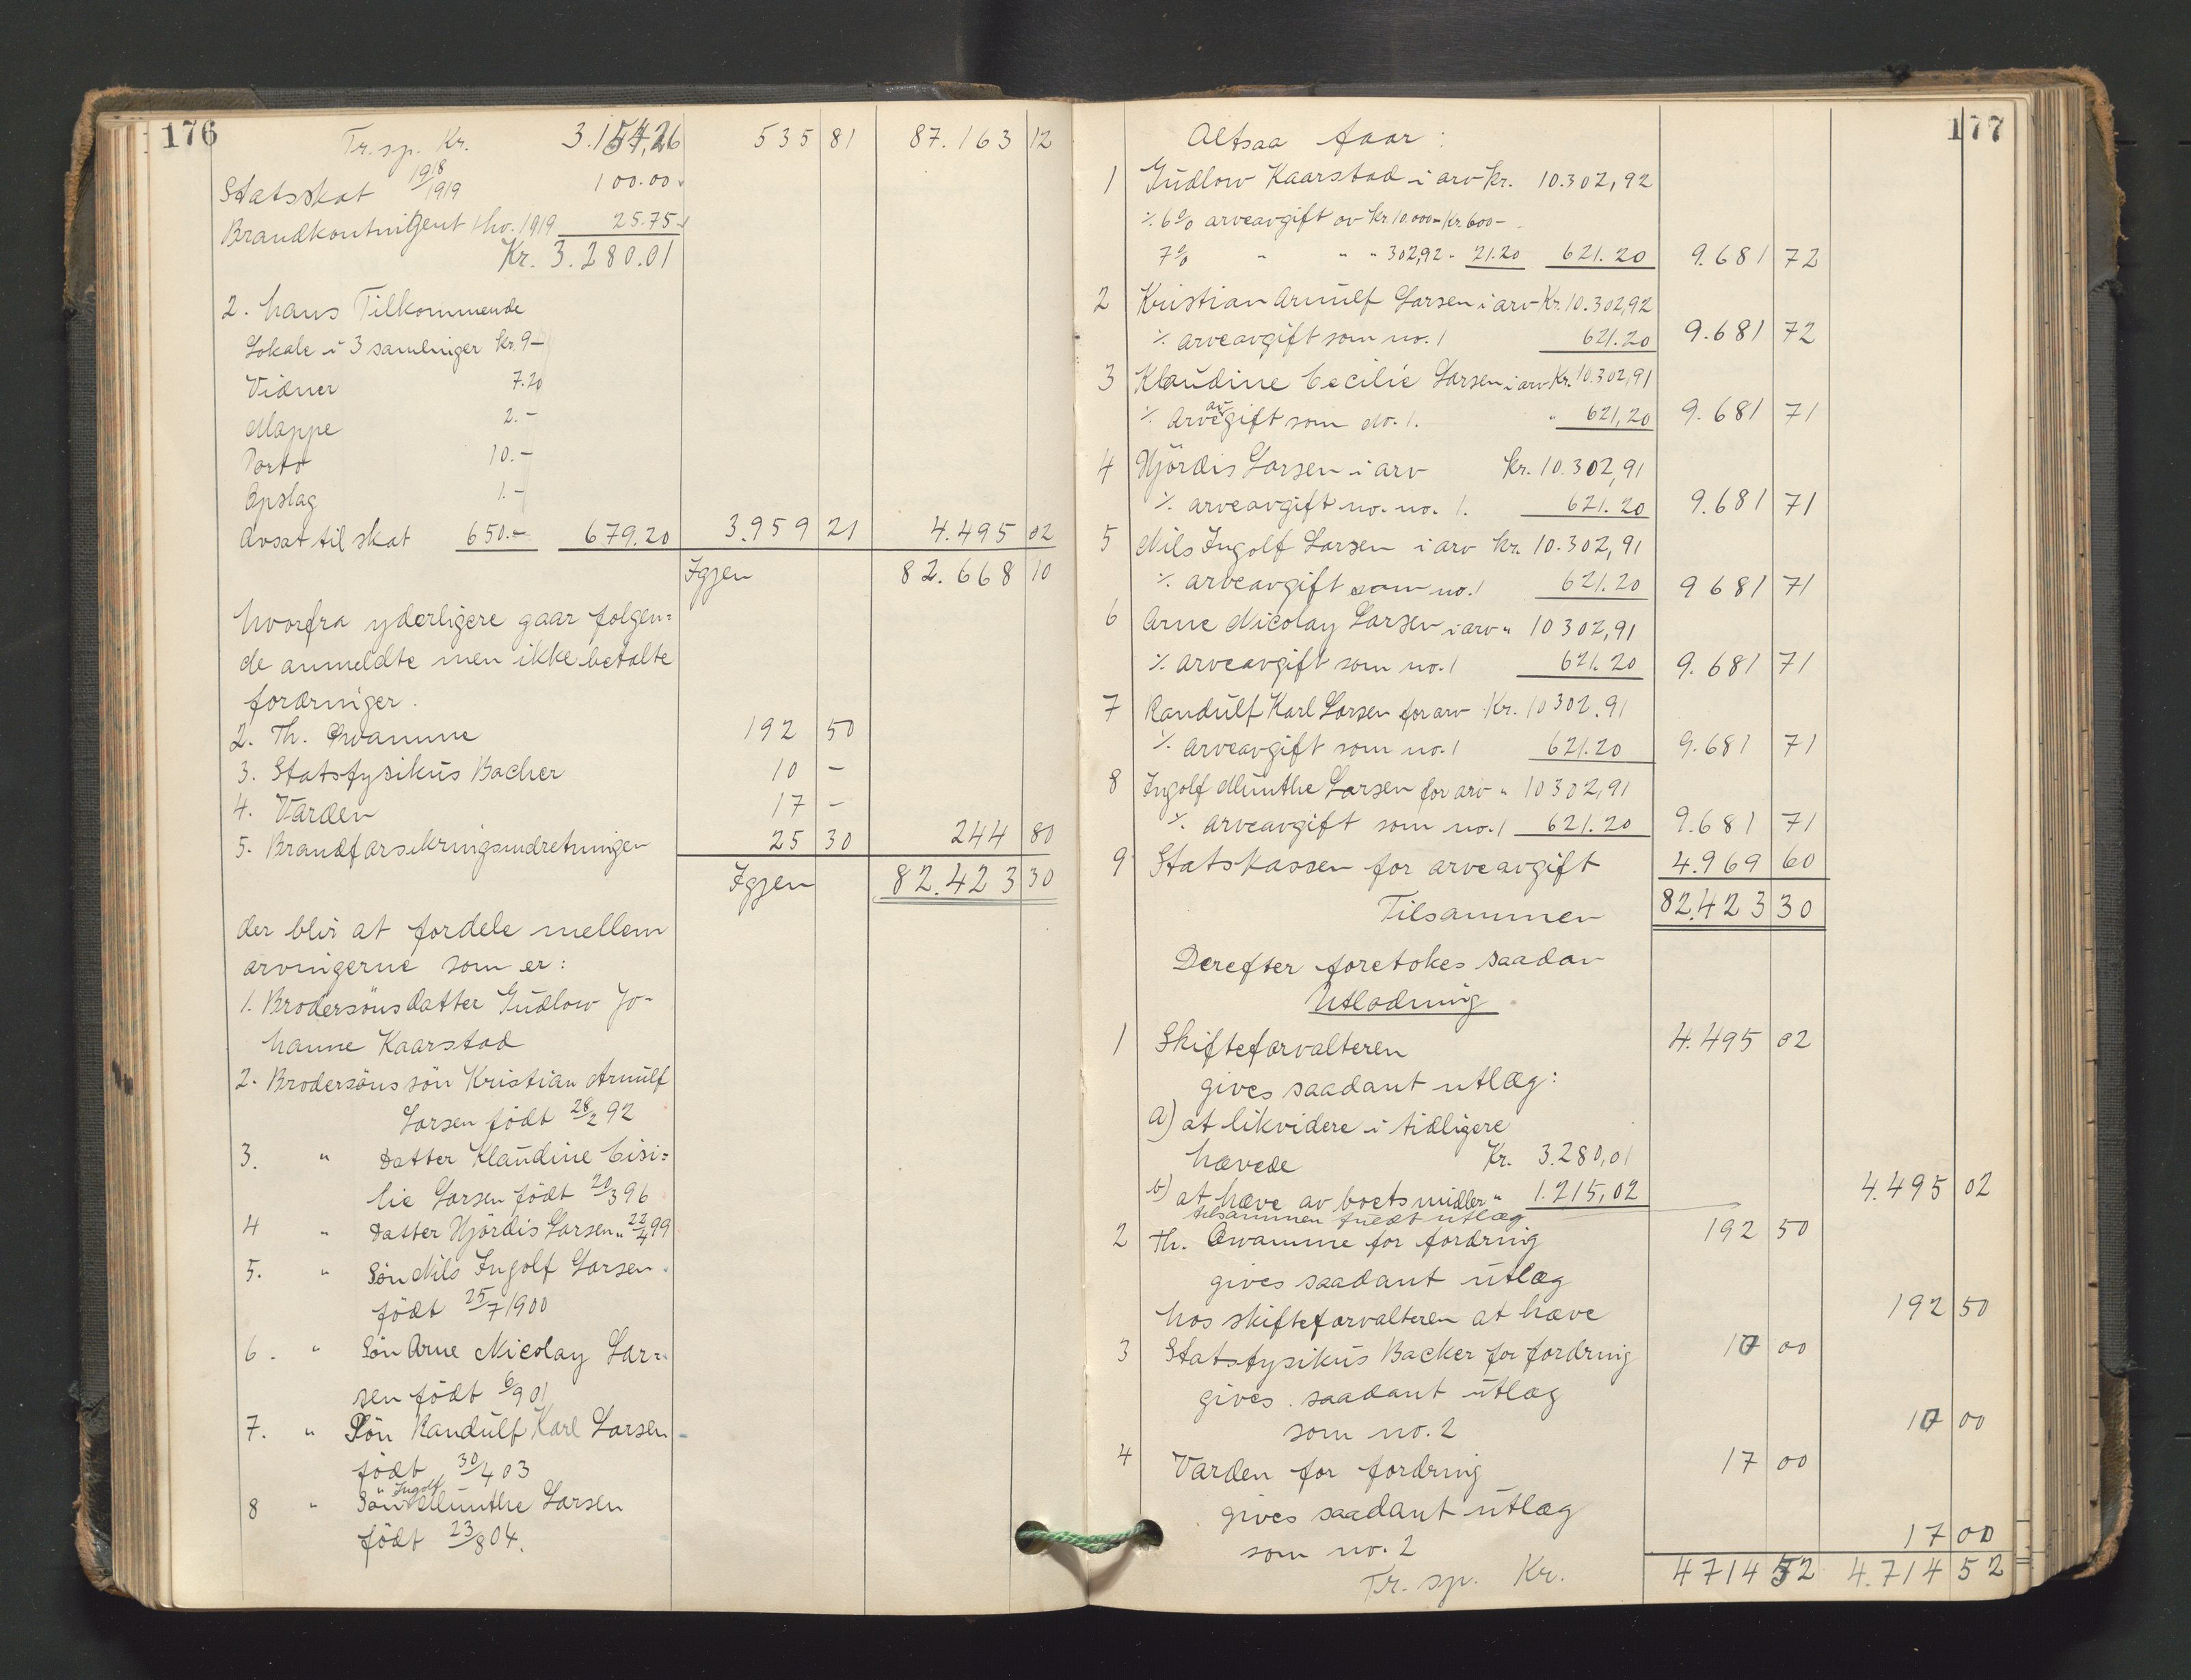 176
Tr. sp. Kr. 3.154,26 535 81 87.163 12
Statsskat 1918/1919 100.00
Brandkontningent 1 hv. 1919 25.75
Kr. 3.280.01
2. hans Tilkommende
Lokale i 3 samlinger Kr. 9–
Vidner 7.20
Mappe 2.–
Porto 10.–
Opslag 1.–
Avsat til skat 650.– 679.20 3.959 21 4.495 02
Igjen 82.668 10
hvorfra yderligere gaar folgen=
de anmeldte men ikke betalte
fordringer.
2. Th. Qvamme 192 50
3. Statsfysikus Backer 10 –
4. Varden 17 –
5. Brandforsikringsindretningen 25 30 244 80
Igjen 82.423 30
der blir at fordele mellem
arvingerne som er:
1. Brodersöns datter Gudlow Jo-
hanne Kaarstad
2. Brodersöns sön Kristian Arnulf
Larsen födt 28/2 92
3. " datter Klaudine Cisi=
lie Larsen födt 20/3 96
4 " datter Hjördis Larsen " 22/4 99
5. " Sön Nils Ingolf Larsen
födt 25/7 1900
6. " Sön Arne Nicolay Lar-
sen födt 6/9 01
7. " Sön Randulf Karl Larsen
födt 30/4 03
8 " Sön Ingolf Munthe Larsen
födt 23/8 04.
177
Altsaa faar:
1 Gudlow Kaarstad i arv Kr. 10.302,92
÷ 6% arveavgift av Kr 10.000– Kr. 600–
7% " " " 302,92 " 21.20 621.20 9.681 72
2 Kristian Arnulf Larsen i arv Kr. 10.302,92
÷ arveavgift som no. 1 621.20 9.681 72
3 Klaudine Cecilie Larsen i arv Kr. 10.302,91
÷ arveavgift som No. 1. " 621,20 9.681 71
4 Hjördis Larsen i arv Kr. 10.302,91
÷ arveavgift no. no. 1. 621.20 9.681 71
5 Nils Ingolf Larsen i arv Kr. 10.302,91
÷ arveavgift som no. 1 621.20 9 681 71
6 Arne Nicolay Larsen i arv " 10 302,91
÷ arveavgift som no. 1 621.20 9.681 71
7 Randulf Karl Larsen for arv Kr. 10 302.91
÷ arveavgift som no. 1 621.20 9.681 71
8 Ingolf Munthe Larsen for arv " 10 302,91
÷ arveavgift som no. 1 621.20 9.681 71
9 Statskassen for arveavgift 4.969 60
Tilsammen 82.423 30
Derefter foretokes saadan
Utlodning
1 Skifteforvalteren 4.495 02
gives saadant utlæg:
a) at likvidere i tidligere
hævede Kr. 3.280,01
b) at hæve av boets midler " 1.215,02 4.495 02
tilsammen fuldt utlæg
2 Th. Qvamme for fordring 192 50
gives saadant utlæg
hos skifteforvalteren at hæve 192 50
3 Statsfysikus Backer for fordring 10 00
gives saadant utlæg
som no. 2 10 00
4 Varden for fordring 17 00
gives saadant utlæg
som no. 2 17 00
Tr. sp. Kr. 4714 52 4.714 52